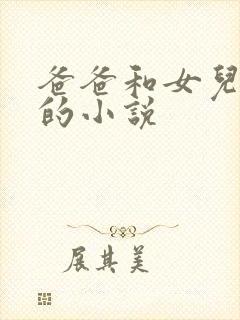 爸爸和女兒
的小說
展其美